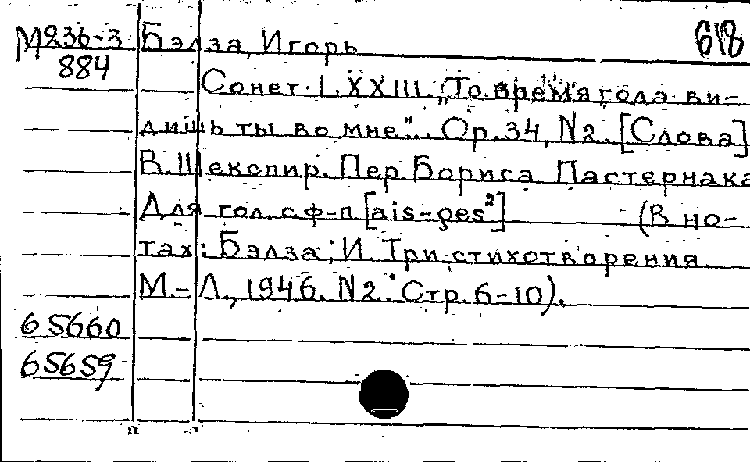 М236-3 Бэлза, Игорь 618
884
Сонет LXXIII „То время года ви-
дишь ты во мне". Ор. 34, N2. [Слова]
В. Шекспир. Пер Бориса Пастернака
Для гол. с ф-п [ais-ges²] (В но-
тах: Бэлза, И. Три стихотворения
М.-Л., 1946. N2. Стр. 6-10).
65660
65659